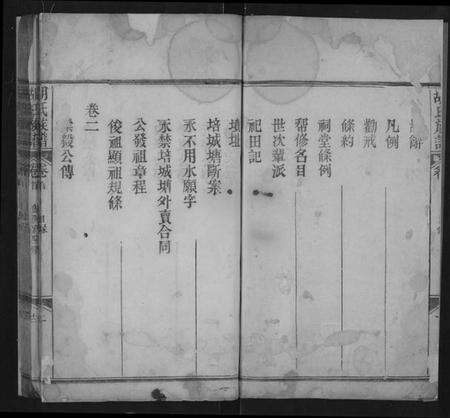 凡例
勸戒
條約
祠堂條例
幫修名目
世次輩派
祀田記
墳址
培城塘斷案
永不用水願字
永禁培城塘外賣合同
公發祖章程
俊祖顯祖規條
卷二
公傳
胡氏族譜
卷首